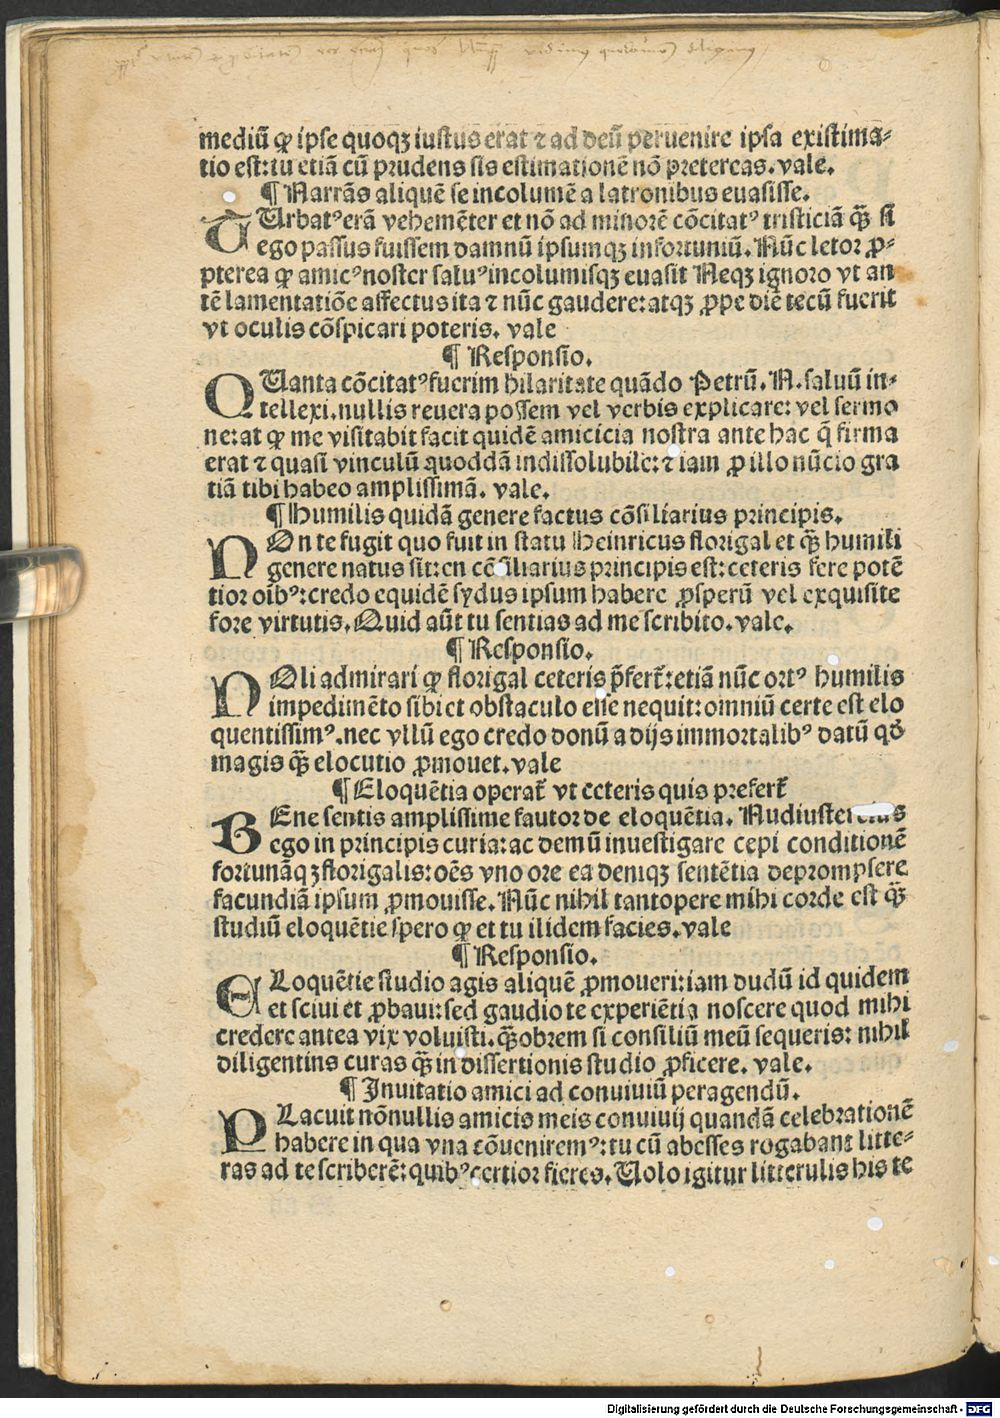 mediū ꝙ ipse quoqꝫ iustus erat ⁊ ad deū peruenire ipsa existima⸗
tio est: tu etiā cū prudens sis estimationē nō pretereas. vale.
¶ Narrās aliquē se incolumē a latronibus euasisse.
TUrbatꝰ erā vehemēter et nō ad minorē cōcitatꝰ tristiciā qꝫ̄ si
ego passus fuissem damnū ipsumqꝫ infortuniū. Nūc letor ꝓ⸗
pterea ꝙ amicꝰ noster saluꝰ incolumisqꝫ euasit Neqꝫ ignoro vt an
tē lamentatiōe affectus ita ⁊ nūc gaudere: atqꝫ ꝓpe diē tecū fuerit
vt oculis cōspicari poteris. vale
¶ Responsio.
QUanta cōcitatꝰ fuerim hilaritate quādo Petrū. N. saluū in⸗
tellexi. nullis reuera possem vel verbis explicare: vel sermo
ne: at ꝙ me visitabit facit quidē amicicia nostra ante hac q̄ firma
erat ⁊ quasi vinculū quoddā indissolubile: ⁊ iam ꝓ illo nūcio gra
tiā tibi habeo amplissimā. vale.
¶ Humilis quidā genere factus cōsiliarius principis.
NOn te fugit quo fuit in statu Heinricus florigal et qꝫ̄ humili
genere natus sit: en cōsiliarius principis est: ceteris fere potē
tior oibꝰ: credo equidē sydus ipsum habere ꝓsperū vel exquisite
fore virtutis. Quid aūt tu sentias ad me scribito. vale.
¶ Responsio.
NOli admirari ꝙ florigal ceteris p̄fert̄: etiā nūc ortꝰ humilis
impedimēto sibi et obstaculo esse nequit: omniū certe est elo
quentissimꝰ. nec vllū ego credo donū a dijs immortalibꝰ datū qd̄
magis qꝫ̄ elocutio ꝓmouet. vale
¶ Eloquētia operat̄ vt ceteris quis prefert̄
BEne sentis amplissime fautor de eloquētia. Nudiustercius
ego in principis curia: ac demū inuestigare cepi conditionē
fortunāqꝫ florigalis: oēs vno ore ea deniqꝫ sentētia depromsere
facundiā ipsum ꝓmouisse. Nūc nihil tantopere mihi corde est qꝫ̄
studiū eloquētie spero ꝙ et tu ilidem facies. vale
¶ Responsio.
ELoquētie studio agis aliquē ꝓmoueri: iam dudū id quidem
et sciui et ꝓbaui: sed gaudio te experiētia noscere quod mihi
credere antea vix voluisti. qꝫ̄obrem si consiliū meū sequeris: nihil
diligentius curas qꝫ̄ in dissertionis studio ꝓficere. vale.
¶ Inuitatio amici ad conuiuiū peragendū.
PLacuit nōnullis amicis meis conuiuij quandā celebrationē
habere in qua vna cōueniremꝰ: tu cū abesses rogabant litte⸗
ras ad te scriberē: quibꝰ certior fieres. Uolo igitur litterulis his te
Digitalisierung gefördert durch die Deutsche Forschungsgemeinschaft - DFG